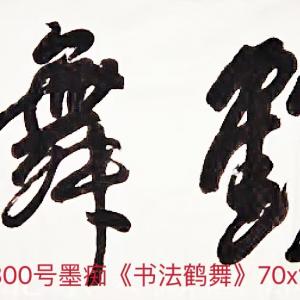 舞
00号墨痴《书法鹤舞》70x